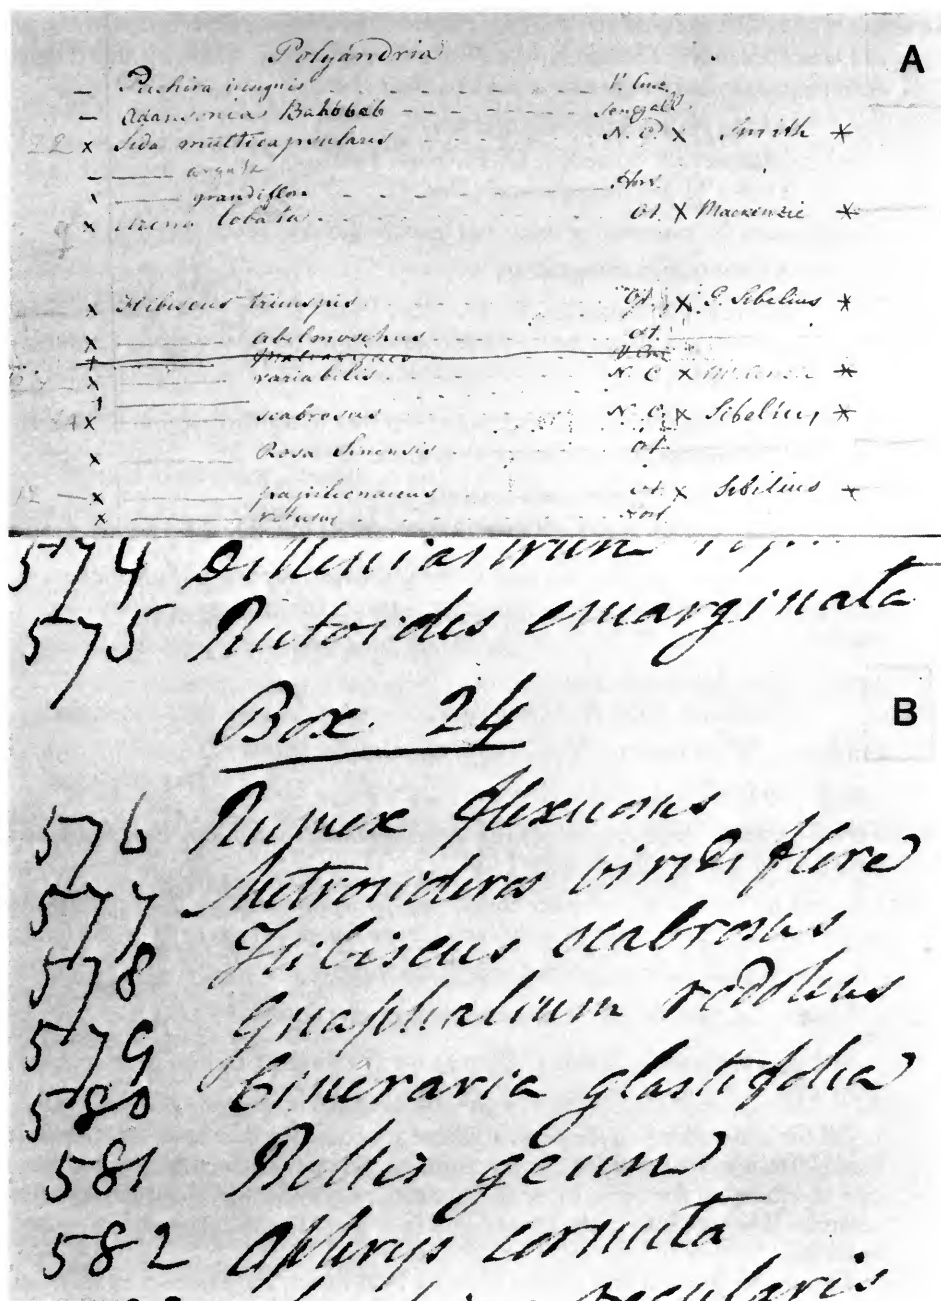 A
Polyandria
— Pachira insignis - - - - - -
— Adansonia Bahobab - - - - - - Senegall
22 x Sida multicapsularis - - - - - N. C. x Smith *
— —— arguta
—— grandiflora - - - - - Hort.
9 x Urena lobata - - - - - - Ot. x Mackenzie *
x Hibiscus - - - Ot. x G. Sibelius *
x —— abelmoschus - - - Ot.
x —— variabilis - - - - N. C x *
x —— scabrosus - - - - N. C. x Sibelius *
x —— Rosa Sinensis - - - - Ot.
12 — x —— papilionaceus - - - - Ot. x Sibilius *
x —— retusus - - - - Hort
574 Dilleniastrum
575 Rutoides emarginata
Box 24
B
576 Rumex flexuosus
577 Metrosideros viridi flore
578 Hibiscus scabrosus
579 Gnaphalium
580 Cineraria glastifolia
581 Bellis
582 Ophrys cornuta